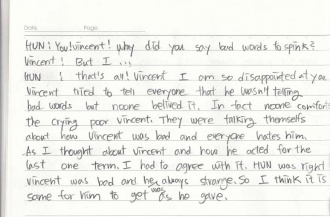 Date. Page.
HUN : You! Vincent! Why did you say bad words to spink?
Vincent : But I ...
HUN : that's all! Vincent I am so disappointed at you.
Vincent tried to tell everyone that he wasn't telling
bad words but noone belived it. In fact noone comforts
the crying poor vincent. They were talking themselfs
about how Vincent was bad and everyone hates him.
As I thought about vincent and how he acted for the
last one term. I had to agree with it. HUN was right
vincent was bad and he always strange. So I think it is
same for him to get as he gave.
was